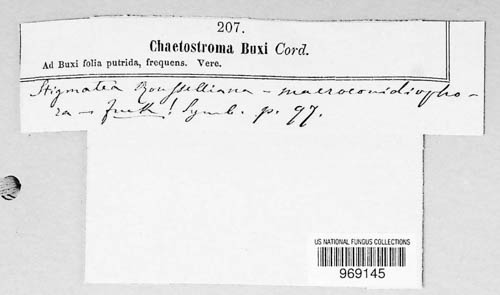 207.
Chaetostroma Buxi Cord.
Ad Buxi folia putrida, frequens. Vere.
Stigmatea Rousselliana – macroconidiopho-
ra – Fuck! Symb. p. 97.
US NATIONAL FUNGUS COLLECTIONS
969145